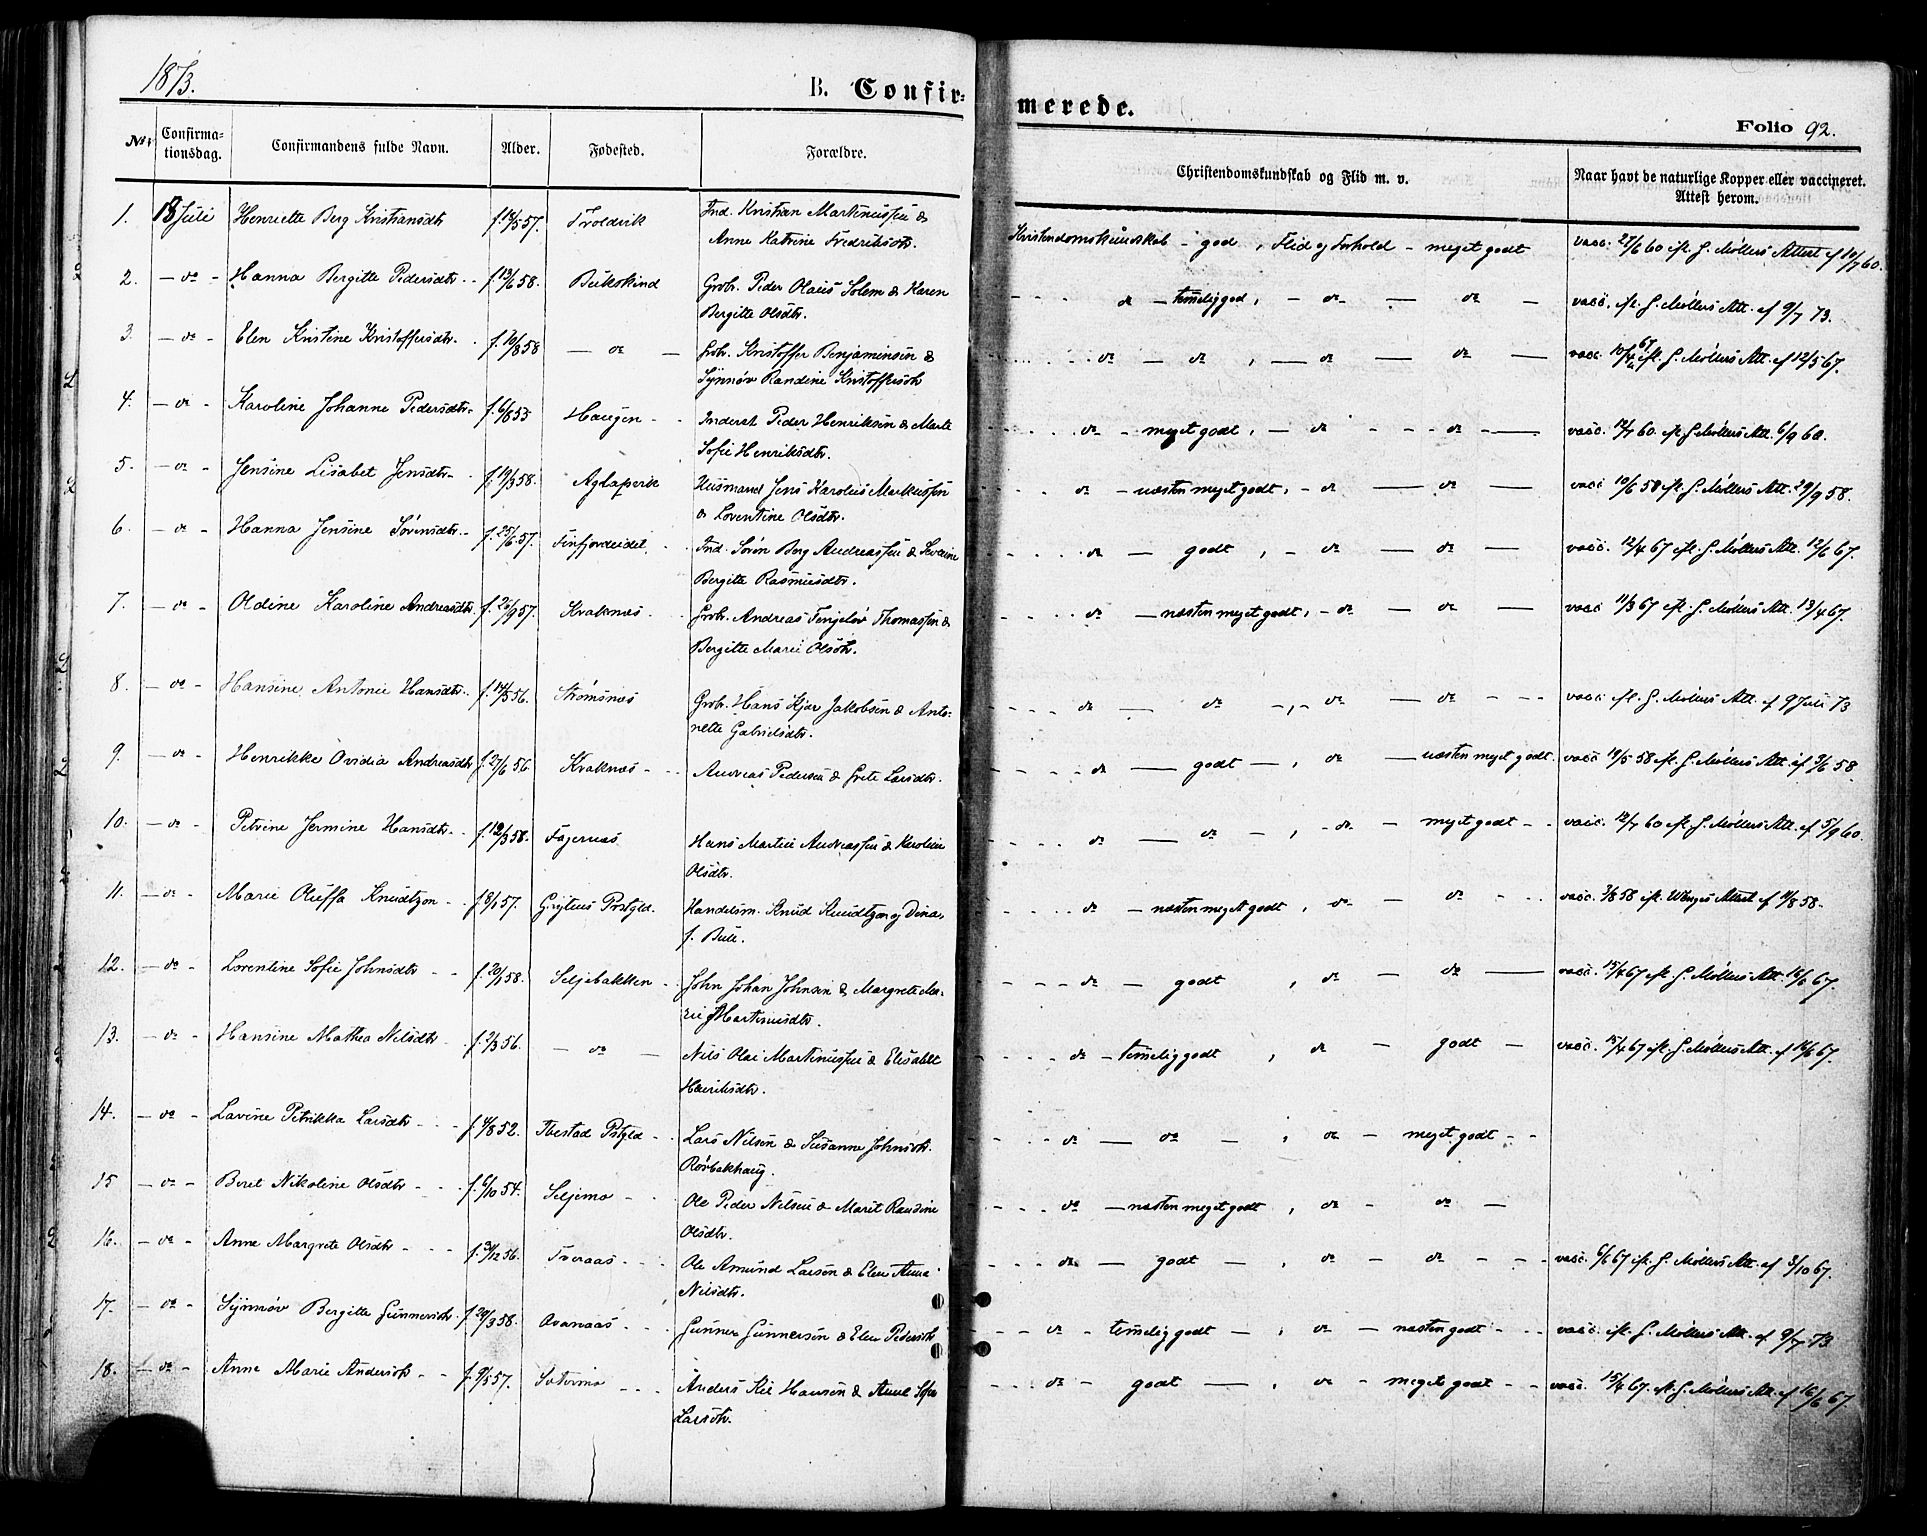 1873.
B. Confir-
merede.
Folio 92.
No.
Confirma-
tionsdag.
Confirmandens fulde Navn.
Alder.
Fødested.
Forældre.
Christendomskundskab og Flid m. v.
Naar havt de naturlige Kopper eller vaccineret.
Attest herom.
1. 18 Juli Henriette Berg Kristiansdtr f. 57. Ind. Kristian Martinussen &
Anne Katrine Fredriksdtr.
Kristendomskundskab - god, Flid og Forhold - meget godt vacc. 27/6 60 efl. S. Møllers Attest af 10/7 60.
2. - do - Hanna Bergitte Pedersdtr. f. 13/6 58. Bukskind Grbr. Peder Olaus Solem & Karen
Bergitte Olsdtr.
- do - temelig god, - do - do - vacc. efl. S. Møllers Att. af 9/7 73.
3. - do - Elen Kristine Kristoffersdtr. f. 10/8 58 - do - Grbr. Kristoffer Benjaminsen &
Synnøv Randine Kristoffersdtr
- do - do, - do - do - vacc. 10/4 67 efl. S. Møllers Att. af 12/5 67.
4. - do - Karoline Johanne Pedersdtr. f. 6/8 55 Haugen Inderst Peder Henriksen & Marte
Sofie Henriksdtr.
- do - meget godt, - do - do - vacc. 12/7 60. efl. S. Møllers Att. 6/9 60.
5. - do - Jensine Lisabet Jensdtr. f. 19/3 58. Aglapsvik Husmand Jens Karolius Markussen
& Lorentine Olsdtr.
- do - næsten meget godt, - do - do - vacc 10/6 58 efl. S. Møllers Att. 29/9 58.
6. - do - Hanna Jensine Sørensdtr. f. 25/6 57. Finfjordeidet Ind. Søren Berg Andreassen & Severine
Bergitte Rasmusdtr.
- do - godt, - do - do - vacc. 12/4 67 efl. S. Møllers Att. 12/6 67.
7. - do - Oldine Karoline Andreasdtr f. 9 57. Kraknæs Grbr. Andreas Fenjelov Thomassen &
Bergitte Marie Olsdtr.
- do - næsten meget godt, - do - do - vacc 11/3 67 efl. S. Møllers Att. 13/4 67.
8. - do - Hansine Antonie Hansdtr. f. 14/5 56. Strømsnæs Grbr. Hans Kjær Jakobsen & Anto-
nette Gabrielsdtr.
- do - do -, - do - do - vacc efl. S. Møllers Att. af 9 Juli 73
9. - do - Henrikke Ovidia Andreasdtr f. 27/6 56. Kraknæs Andreas Pedersen & Grete Larsdtr.
- do - godt -, do - næsten meget godt. vacc 19/5 58 efl. S. Møllers Att. af 3/6 58
10. - do - Petrine Jermine Hansdtr. f. 12/3 58. Fagernæs Hans Martin Andreassen & Karoline
Olsdtr.
- do - do -, - do - meget godt - vacc 12/7 60 efl. S. Møllers Att. af 5/9 60.
11. - do - Marie Oluffa Knudtzon f. 8/1 57. Grytens Prstgld. Handelsm. Knud Knudtzon og Dina,
f. Bull.
- do - næsten meget godt, do - do - vacc. 3/8 58 efl. Wangs Attest af 11/8 58.
12. - do - Lorentine Sofie Johnsdtr f. 20/1 58. Seljebakken John Johan Johnsen & Margrete Ma-
rie Martinusdtr.
- do - godt, do - do - vacc. 15/4 67 efl. S. Møllers Att. 16/6 67.
13. - do - Hansine Mathea Nilsdtr f. 2/3 56. - do - Nils Olai Martinussen & Elisabet
Henriksdtr.
- do - temelig godt, do - godt - vacc. 15/4 67 efl. S. Møllers Att. af 16/6 67.
14. - do - Lavine Petrikka Larsdtr f. 4/8 52. Ibestad Pstgld Lars Nilsen & Susanne Johnsdtr.
Rørbakhaug.
- do - do -, do - meget godt -
15 - do - Beret Nikoline Olsdtr f. 6/10 54. Seljemo Ole Peder Nilsen & Marit Randine
Olsdtr.
- do - næsten meget godt, do - do -
16. - do - Anne Margrete Olsdtr f. 3/12 56. Tveraas Ole Amund Larsen & Elen Anna
Nilsdtr.
- do - godt -, do - do - vacc. 6/6 67 efl. S. Møllers Att. af 3/10 67.
17. - do - Synnøv Bergitte Gunnersdtr. f. 20/3 58. Øvernaas Gunner Gunnersen & Elen Pedersdtr
- do - temelig godt -, do - næsten godt - vacc. efl. S. Møllers Att. af 9/7 73
18. - do - Anne Marie Andersdtr f. 9/5 57. Sætermo Anders Kil Hansen & Anne Sofie
Larsdtr.
- do - godt -, do - meget godt - vacc. 15/4 67. efl. S. Møllers Att. af 16/6 67.